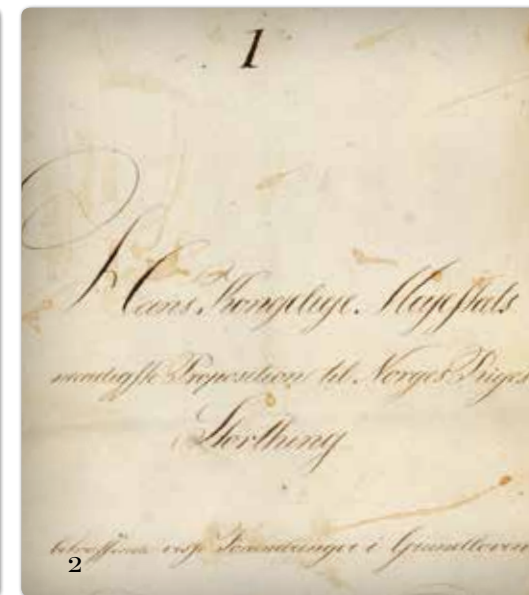 1
Hans Kongelige Mayestæts
naadigste Proposition til Norges Riges
Storthing
2
betræffende visse Forandringer i Grundloven